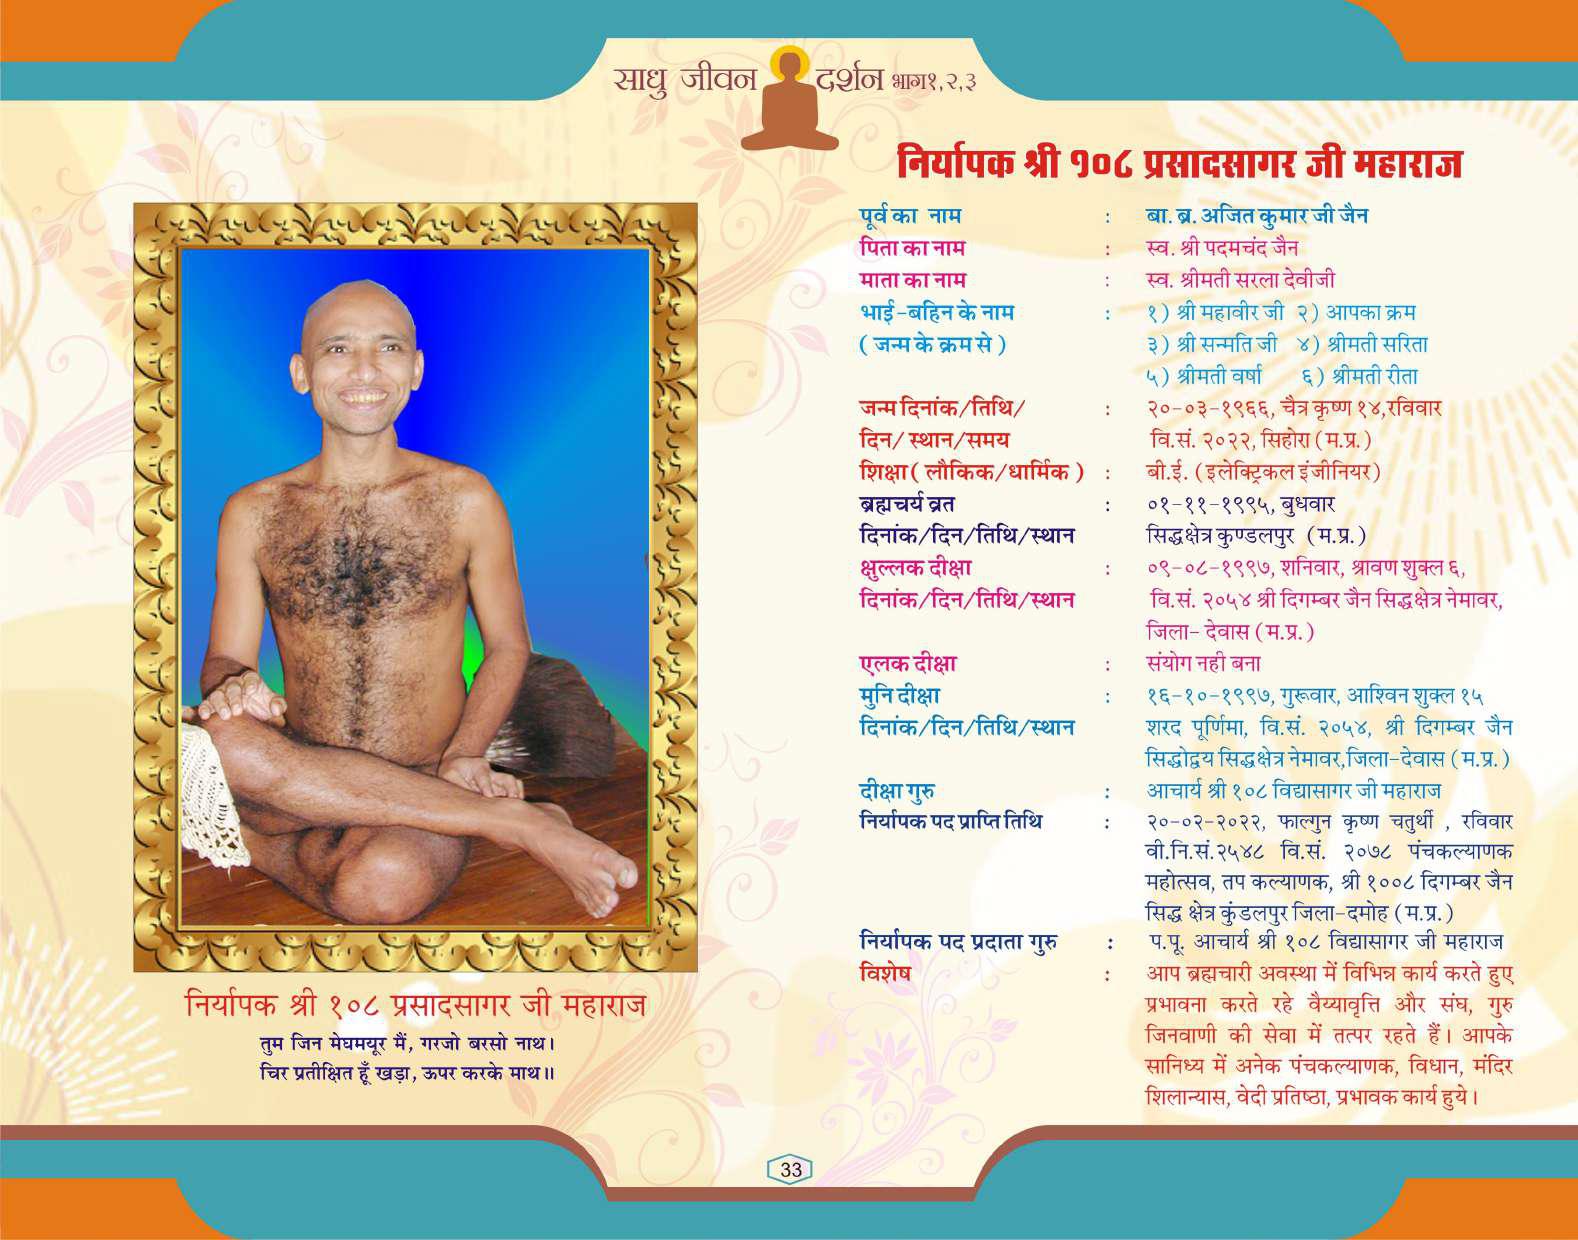 साधु जीवन दर्शन भाग१,२,३
निर्यापक श्री १०८ प्रसादसागर जी महाराज
पूर्व का नाम : बा. ब्र. अजित कुमार जी जैन
पिता का नाम : स्व. श्री पदमचंद जैन
माता का नाम : स्व. श्रीमती सरला देवीजी
भाई-बहिन के नाम : १) श्री महावीर जी २) आपका क्रम
( जन्म के क्रम से ) ३) श्री सन्मति जी ४) श्रीमती सरिता
५) श्रीमती वर्षा ६) श्रीमती रीता
जन्म दिनांक/तिथि/ : २०-०३-१९६६, चैत्र कृष्ण १४,रविवार
दिन/ स्थान/समय वि.सं. २०२२, सिहोरा (म.प्र.)
शिक्षा ( लौकिक/धार्मिक ) : बी.ई. (इलेक्ट्रिकल इंजीनियर)
ब्रह्मचर्य व्रत : ०१-११-१९९५, बुधवार
दिनांक/दिन/तिथि/स्थान सिद्धक्षेत्र कुण्डलपुर (म.प्र.)
क्षुल्लक दीक्षा : ०९-०८-१९९७, शनिवार, श्रावण शुक्ल ६,
दिनांक/दिन/तिथि/स्थान वि.सं. २०५४ श्री दिगम्बर जैन सिद्धक्षेत्र नेमावर,
जिला- देवास (म.प्र.)
एलक दीक्षा : संयोग नही बना
मुनि दीक्षा : १६-१०-१९९७, गुरूवार, आश्विन शुक्ल १५
दिनांक/दिन/तिथि/स्थान शरद पूर्णिमा, वि.सं. २०५४, श्री दिगम्बर जैन
सिद्धोद्वय सिद्धक्षेत्र नेमावर,जिला-देवास (म.प्र.)
दीक्षा गुरु : आचार्य श्री १०८ विद्यासागर जी महाराज
निर्यापक पद प्राप्ति तिथि : २०-०२-२०२२, फाल्गुन कृष्ण चतुर्थी , रविवार
वी.नि.सं.२५४८ वि.सं. २०७८ पंचकल्याणक
महोत्सव, तप कल्याणक, श्री १००८ दिगम्बर जैन
सिद्ध क्षेत्र कुंडलपुर जिला-दमोह (म.प्र.)
निर्यापक पद प्रदाता गुरु : प.पू. आचार्य श्री १०८ विद्यासागर जी महाराज
विशेष : आप ब्रह्मचारी अवस्था में विभिन्न कार्य करते हुए
प्रभावना करते रहे वैय्यावृत्ति और संघ, गुरु
जिनवाणी की सेवा में तत्पर रहते हैं। आपके
सानिध्य में अनेक पंचकल्याणक, विधान, मंदिर
शिलान्यास, वेदी प्रतिष्ठा, प्रभावक कार्य हुये।
निर्यापक श्री १०८ प्रसादसागर जी महाराज
तुम जिन मेघमयूर मैं, गरजो बरसो नाथ।
चिर प्रतीक्षित हूँ खड़ा, ऊपर करके माथ॥
33